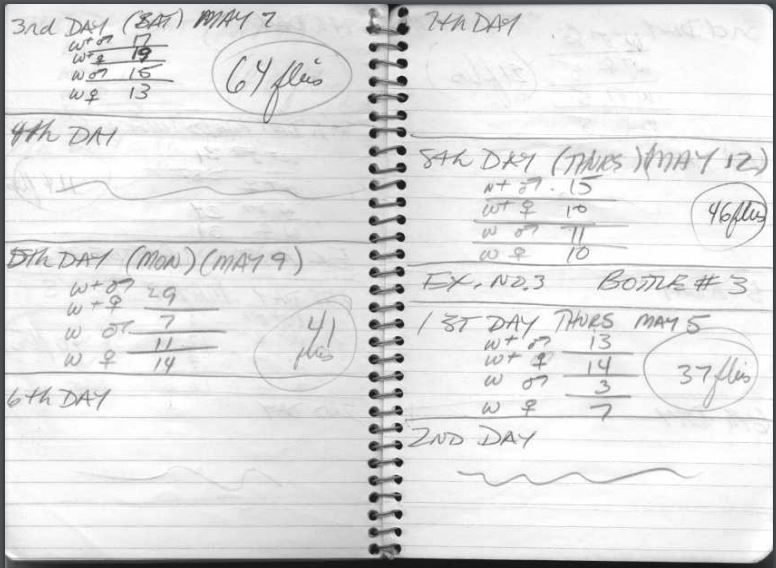 3rd DAY (SAT) MAY 7
w+ ♂ 17
w+ ♀ 19
w ♂ 15
w ♀ 13
64 flies
4th DAY
5th DAY (MON) (MAY 9)
w+ ♂ 9
w+ ♀ 7
w ♂ 11
w ♀ 14
41 flies
6th DAY
7th DAY
8th DAY (THURS) (MAY 12)
w+ ♂ 15
w+ ♀ 10
w ♂ 11
w ♀ 10
46 flies
EX. NO. 3 BOTTLE # 3
1ST DAY THURS MAY 5
w+ ♂ 13
w+ ♀ 14
w ♂ 3
w ♀ 7
37 flies
2ND DAY